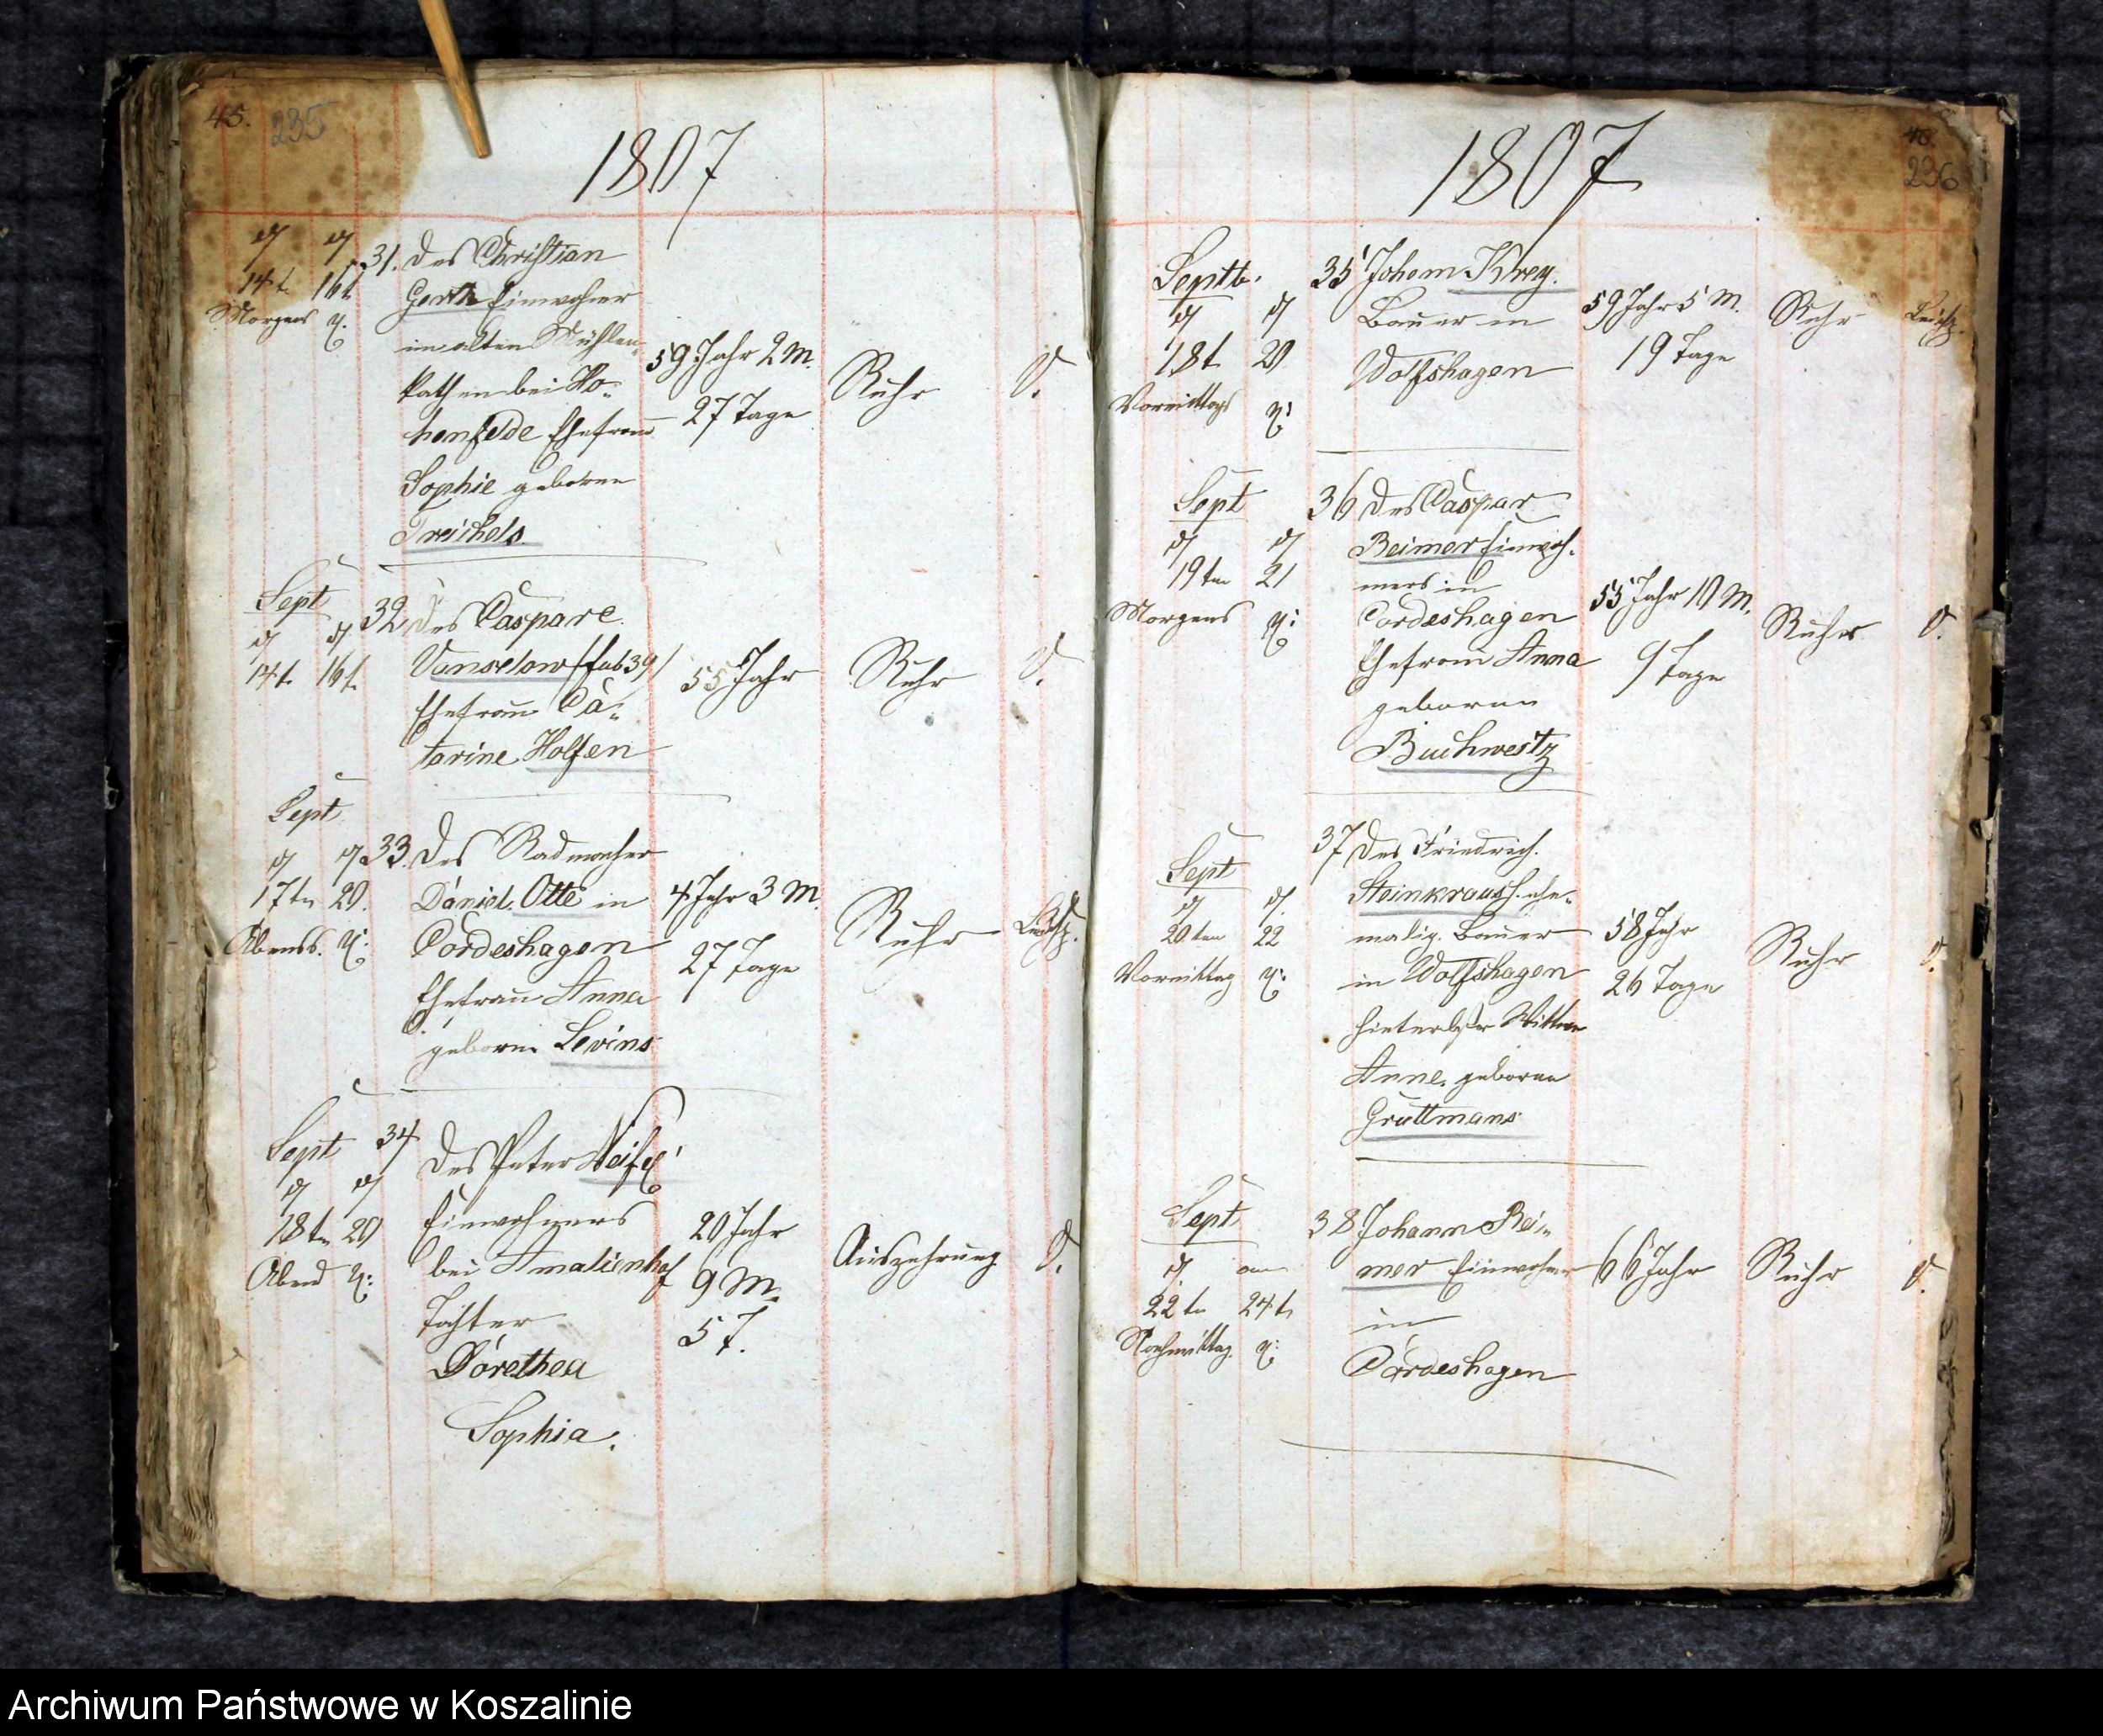 45.
235
1807
31. des Christian
14t. 16t
Gertz Einwohner
Morgens
im alten Mühlen=
kathen bei Ho=
59 Jahr 2 M.
Ruhr
henfelde Ehefrau
27 Tage
Sophie geborne
Treichels.
Sept
32 des Caspare
14t. 16t.
Vanselow
55 Jahr
Ruhr
Ehefrau Ca=
tarine Holfen
Sept
33. des Radmacher
17tn 20.
Daniel Otte in
4 Jahr 3 M.
Ruhr
Abends.
Cordeshagen
27 Tage
Ehefrau Anna
geborne Levins
Sept
34
des Peter
18tn 20
Einwohners
20 Jahr
Abend
bei Amalienhof
9 M.
Auszehrung
Tochter
5 T.
Dorethea
Sophia.
46.
236
1807
Septb.
35 Johann Krey.
18t 20
Bauer in
59 Jahr 5 M.
Ruhr
Leichp.
Wolfshagen
19 Tage
Vormittags
Sept
36 des Caspar
19tn 21
Beimer Einwoh=
ners in
Morgens
Cordeshagen
55 Jahr 10 M.
Ruhr
Ehefrau Anna
9 Tage
geborne
Buchwestz
Sept
37 des Friedrich
20ten 22
Steinkrausß. ehe=
malig. Bauer
58 Jahr
Ruhr
Vormittag
in Wolfshagen
26 Tage
hinterlßne Wittwe
Anne. geborne
Gruttmans
Sept
38 Johann Bei=
22tn 24t.
mer Einwohner
66 Jahr
Ruhr
Nachmittag.
in
Cordeshagen
Archiwum Państwowe w Koszalinie